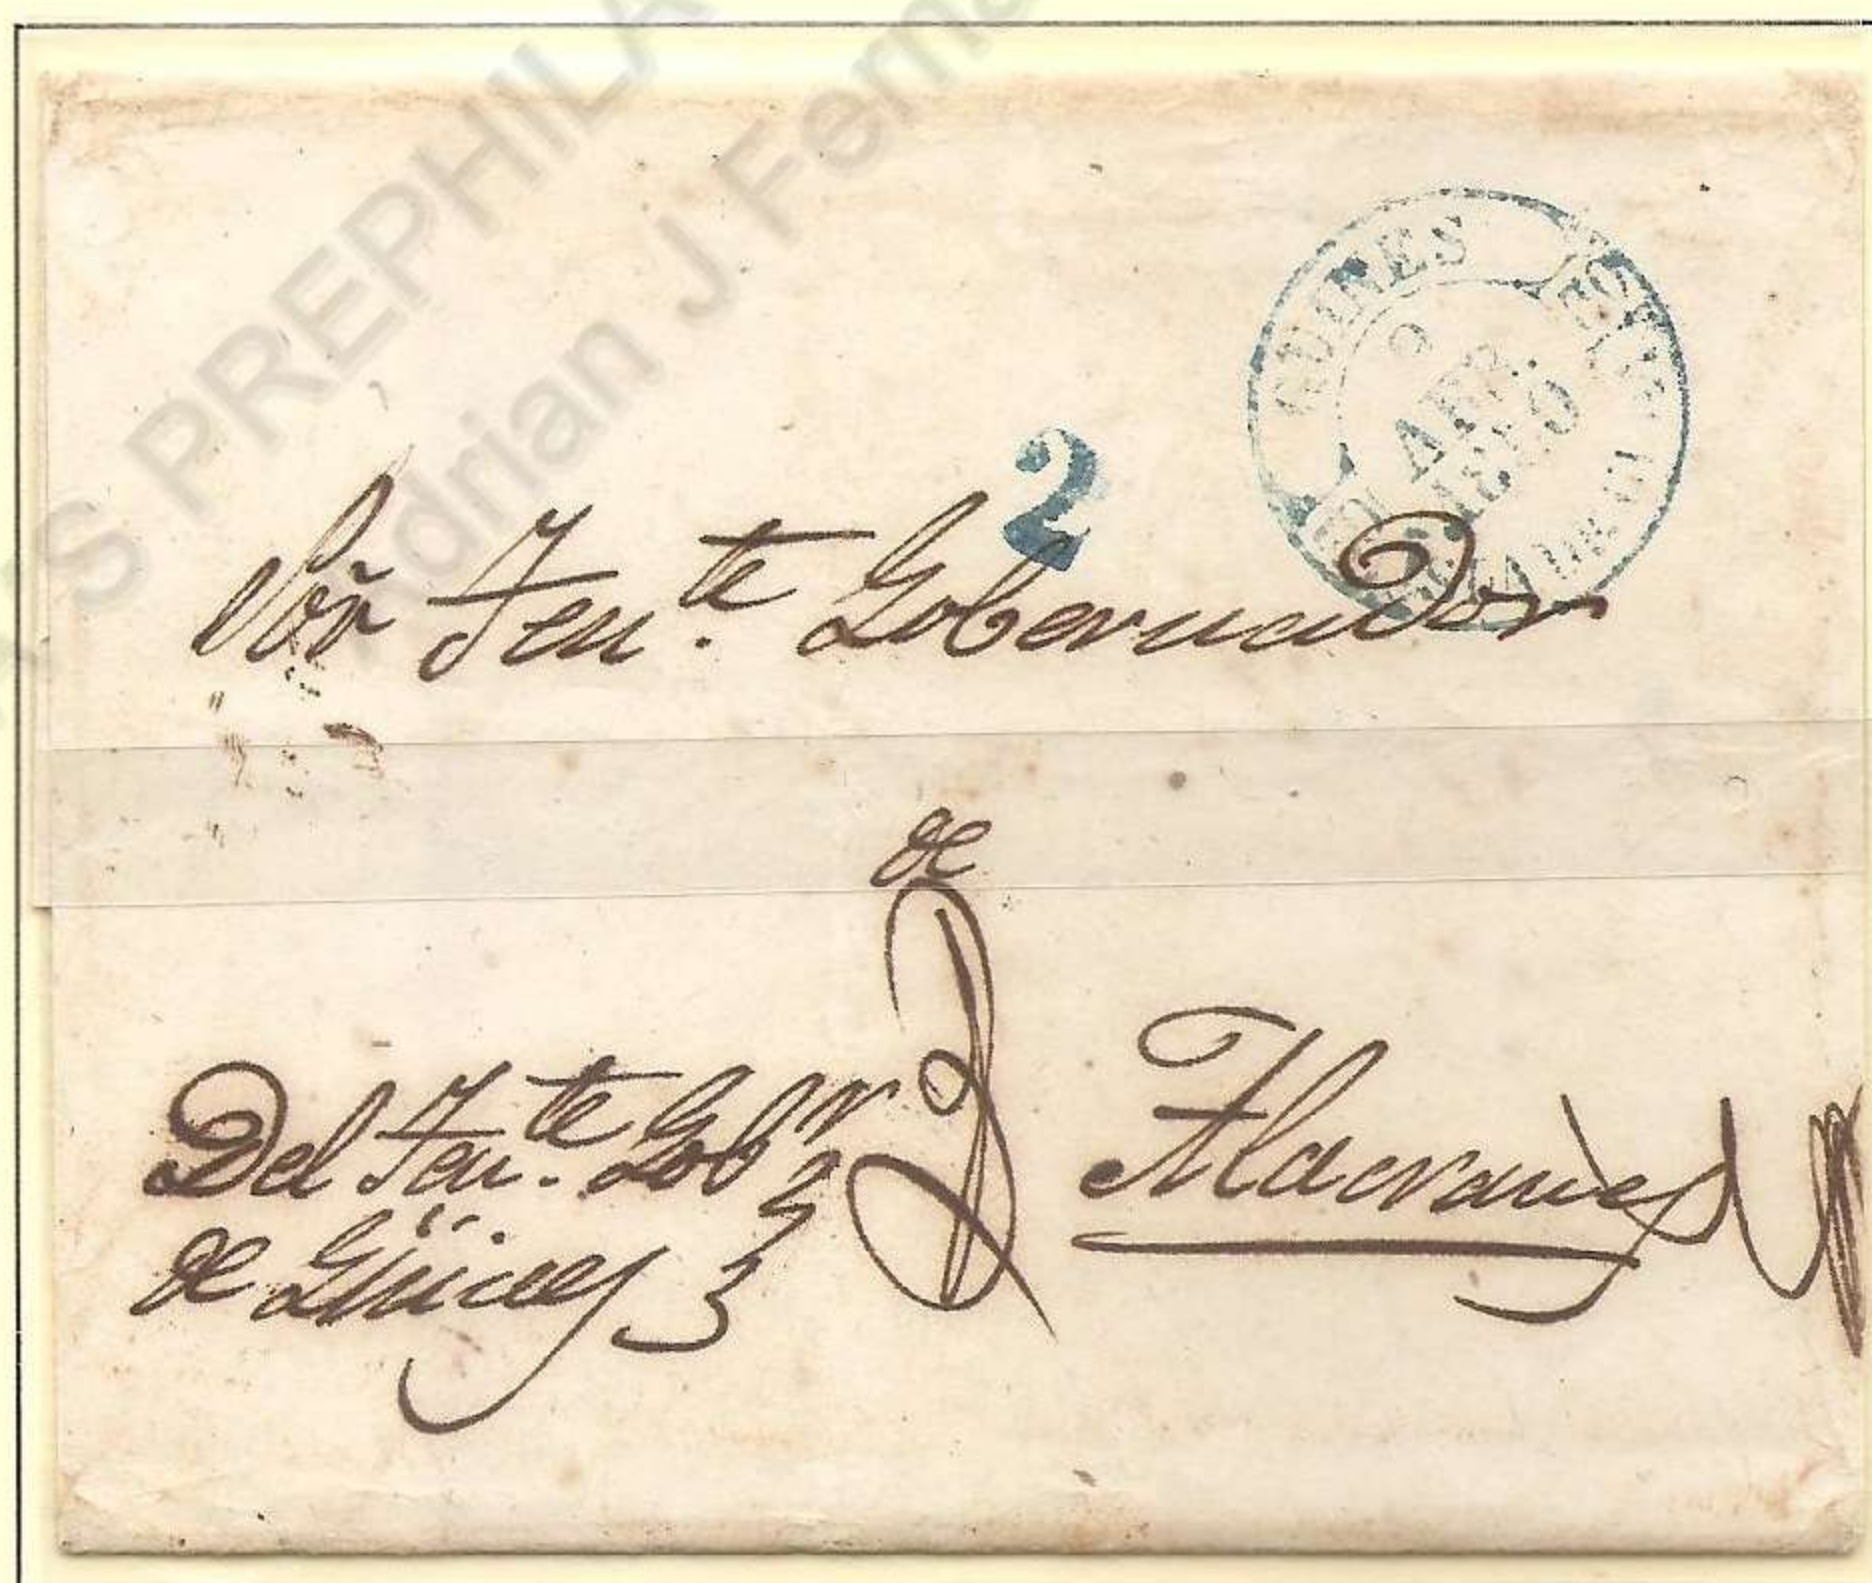 S PREPHILA
Adrian J Ferna
GUINES
2
ABR.
Sõr Ten.te Gobernador
de
Del Ten.te Gobr
de Güines
Alacranes